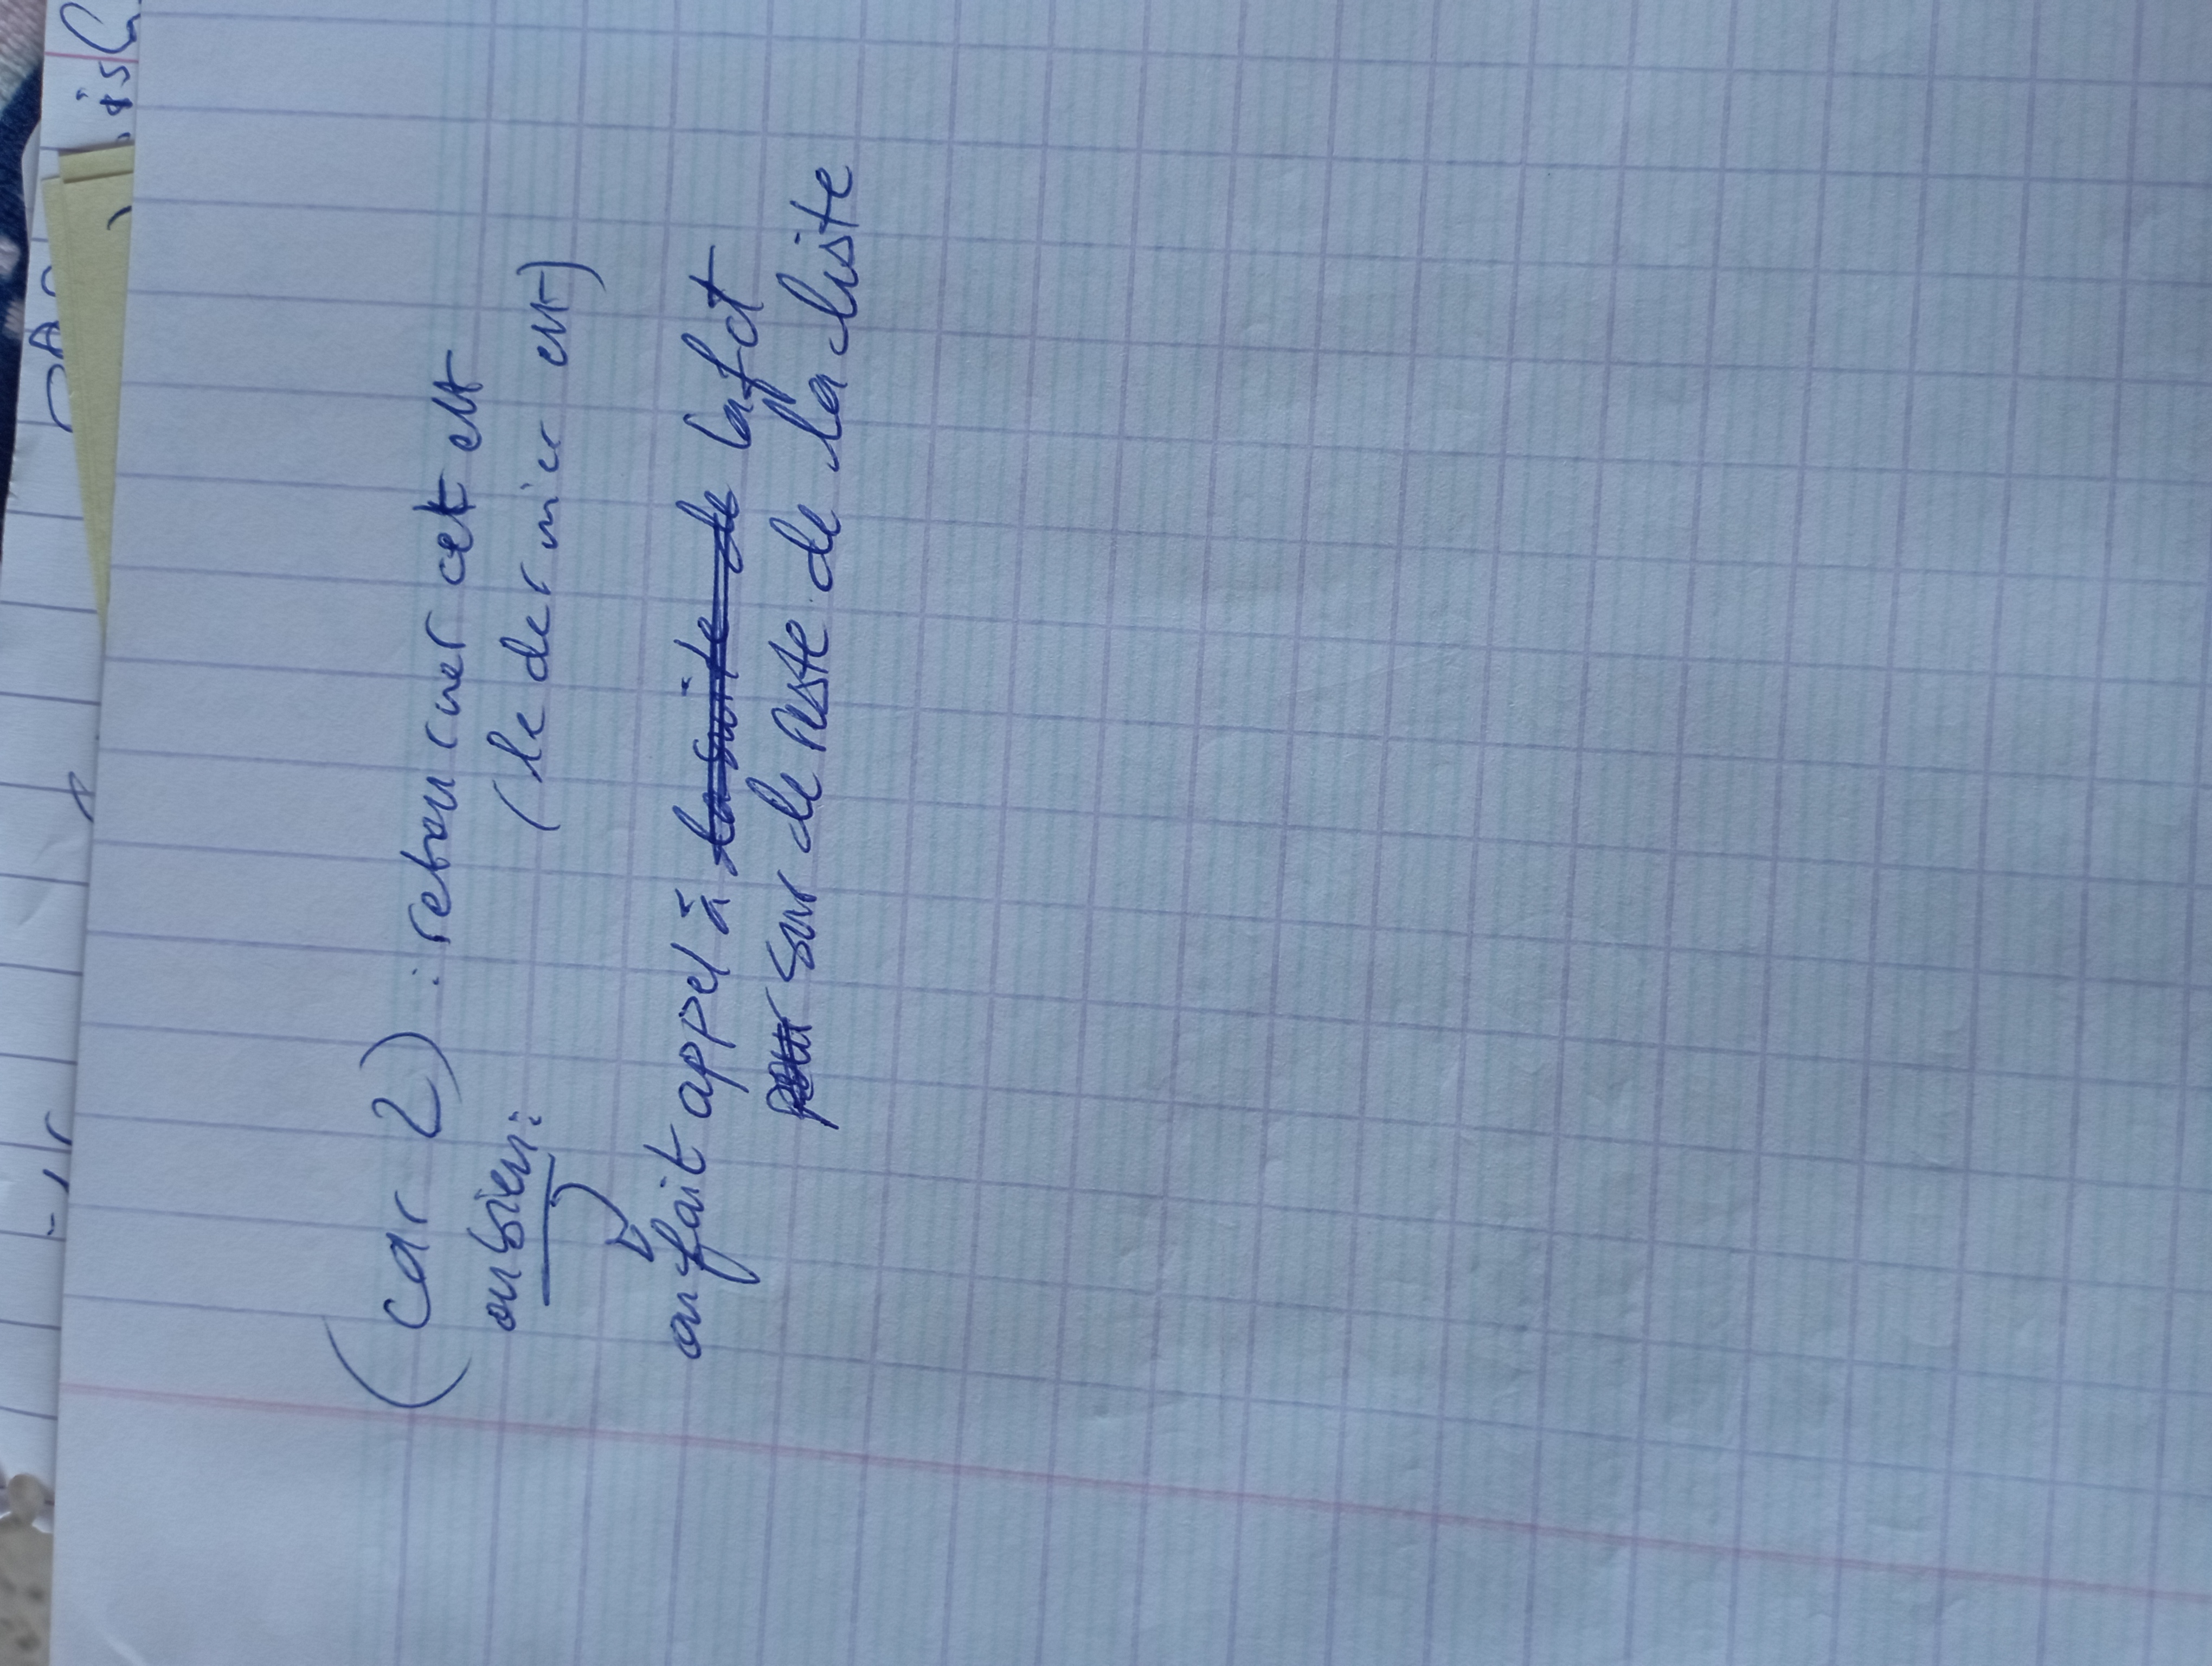 (car 2) : retourner cet elt
ou bien : (le dernier elt)
on fait appel à la suite de la fct
pour sur le reste de la liste